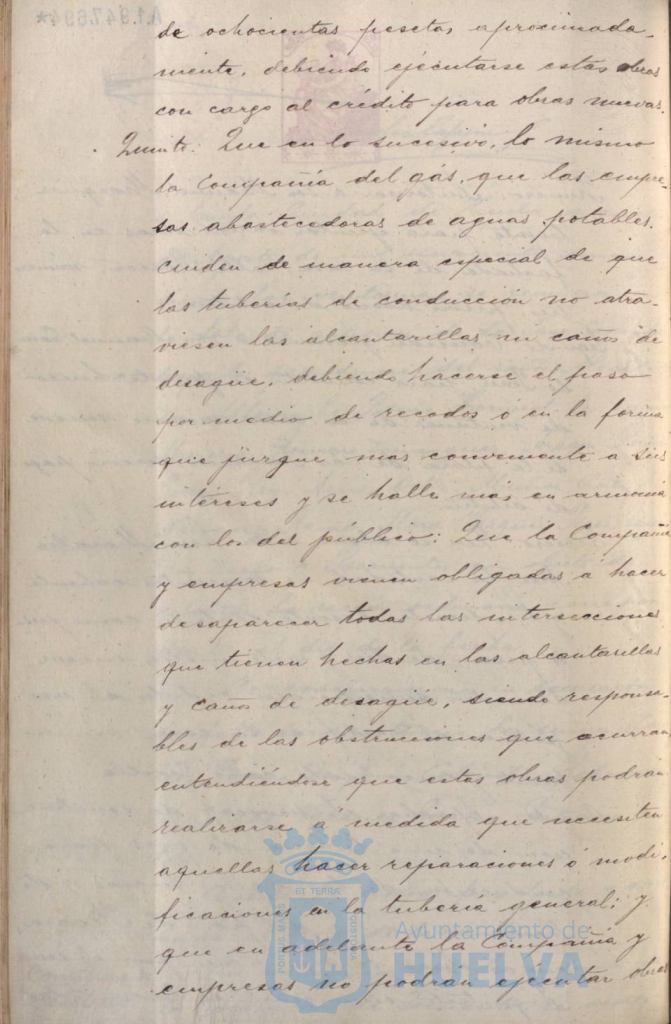 de ochocientas pesetas aproximada-
mente, debiendo ejecutarse estas obras
con cargo al crédito para obras nuevas.
Quinto: Que en lo sucesivo, lo mismo
la Compañía del gás, que las empre-
sas abastecedoras de aguas potables,
cuiden de manera especial de que
las tuberías de conducción no atra-
viesen las alcantarillas ni caños de
desagüe, debiendo hacerse el paso
por medio de recodos ó en la forma
que juzgue mas conveniente á sus
intereses y se halle más en armonía
con los del público: Que la Compañía
y empresas vienen obligadas á hacer
desaparecer todas las intersecciones
que tienen hechas en las alcantarillas
y caños de desagüe, siendo responsa-
bles de las obstrucciones que ocurran,
entendiéndose que estas obras podrán
realizarse á medida que necesiten
aquellas hacer reparaciones ó modi-
ficaciones en la tubería general; y
que en adelante la Compañía y
empresas no podrán ejecutar obras
Ayuntamiento de
HUELVA